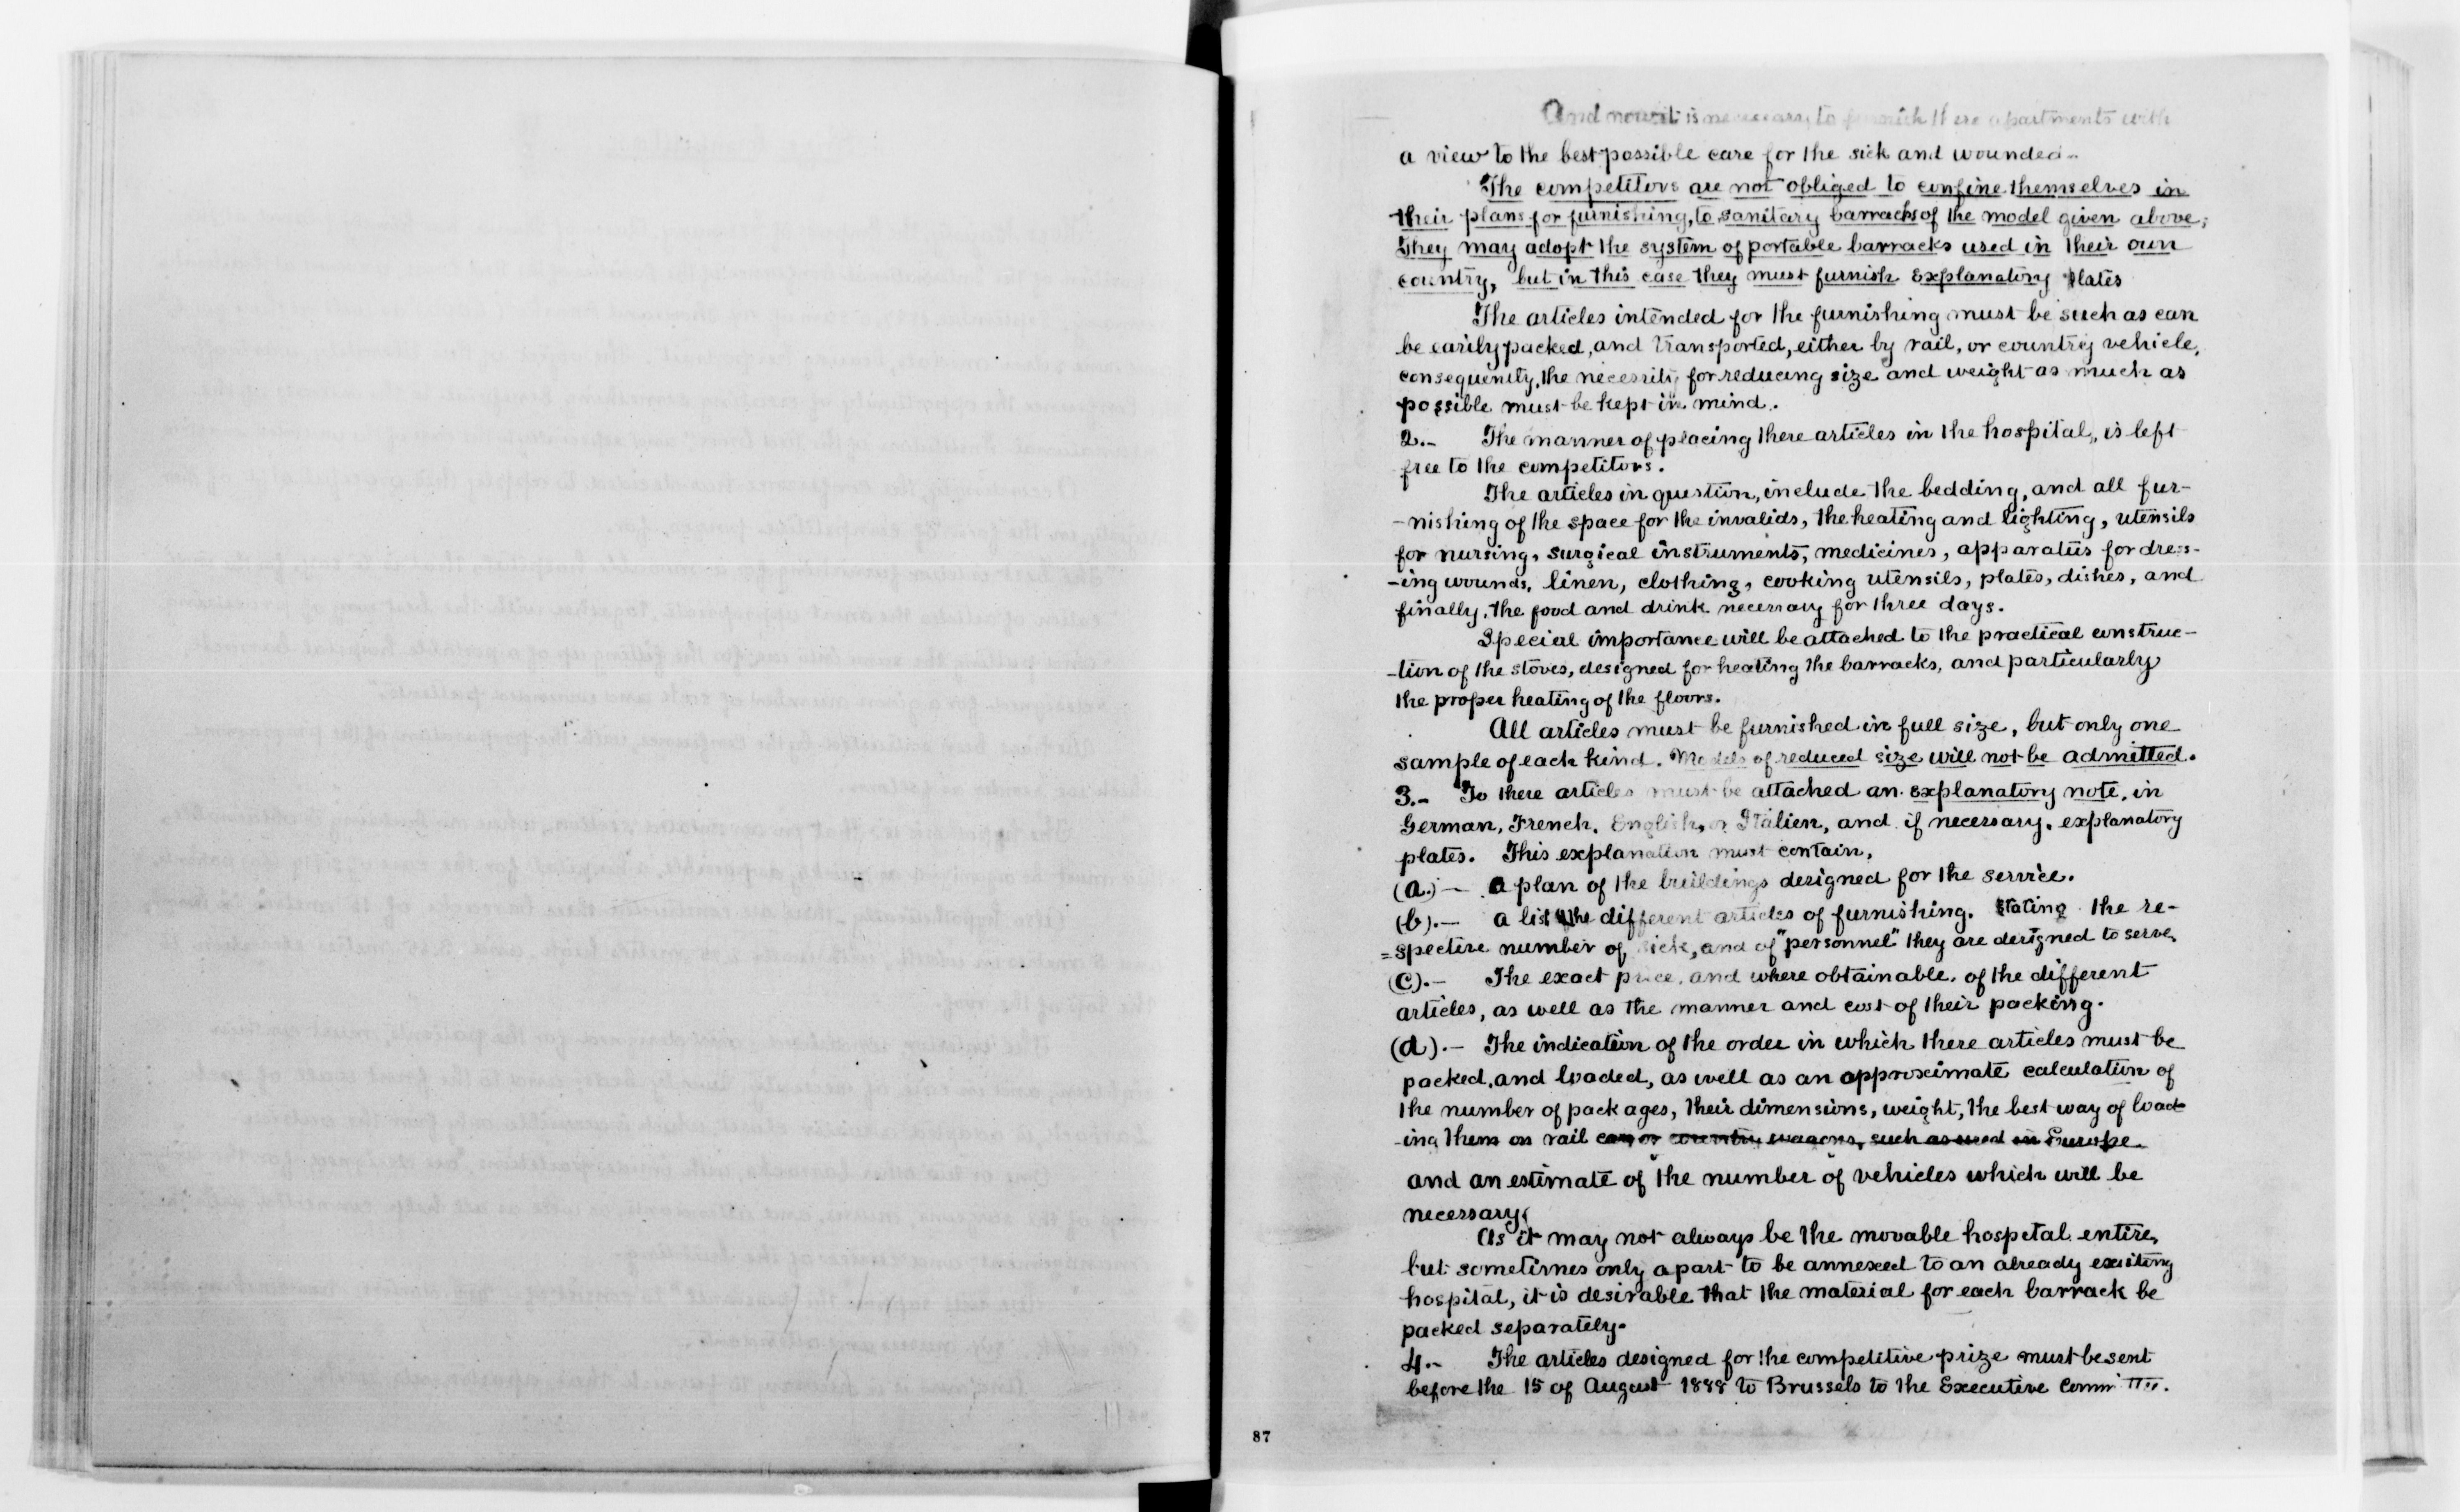 And now it is necessary to furnish these apartments with
a view to the best possible care for the sick and wounded.-
The competitors are not obliged to confine themselves in
their plans for furnishing, to sanitary barracks of the model given above;
They may adopt the system of portable barracks used in their own
country, but in this case they must furnish explanatory plates
The articles intended for the furnishing must be such as can
be easily packed, and transported, either by rail, or country vehicle,
consequently, the necessity for reducing size and weight as much as
possible must be kept in mind.
2.- The manner of placing these articles in the hospital, is left
free to the competitors.
The articles in question, include the bedding, and all fur-
-nishing of the space for the invalids, the heating and lighting, utensils
for nursing, surgical instruments, medicines, apparatus for dress-
-ing wounds, linen, clothing, cooking utensils, plates, dishes, and
finally, the food and drink necessary for three days.
Special importance will be attached to the practical construc-
-tion of the stoves, designed for heating the barracks, and particularly
the proper heating of the floors.
All articles must be furnished in full size, but only one
sample of each kind. Models of reduced size will not be admitted.
3.- To these articles must be attached an explanatory note, in
German, French, English, or Italien, and if necessary, explanatory
plates. This explanation must contain,
(a.)- a plan of the buildings designed for the service.
(b).- a list the different articles of furnishing. Stating the re-
=spective number of sick, and of "personnel" they are designed to serve,
(c).- The exact price, and where obtainable, of the different
articles, as well as the manner and cost of their packing.
(d).- The indication of the order in which these articles must be
packed, and loaded, as well as an approximate calculation of
the number of packages, their dimensions, weight, the best way of load
-ing them on rail cars or country wagons, such as used in Europe
and an estimate of the number of vehicles which will be
necessary.
As it may not always be the movable hospetal entire,
but sometimes only a part to be annexed to an already existing
hospital, it is desirable that the material for each barrack be
packed separately.
4.- The articles designed for the competitive prize must be sent
before the 15 of August 1888 to Brussels to the Executive Committee.
87